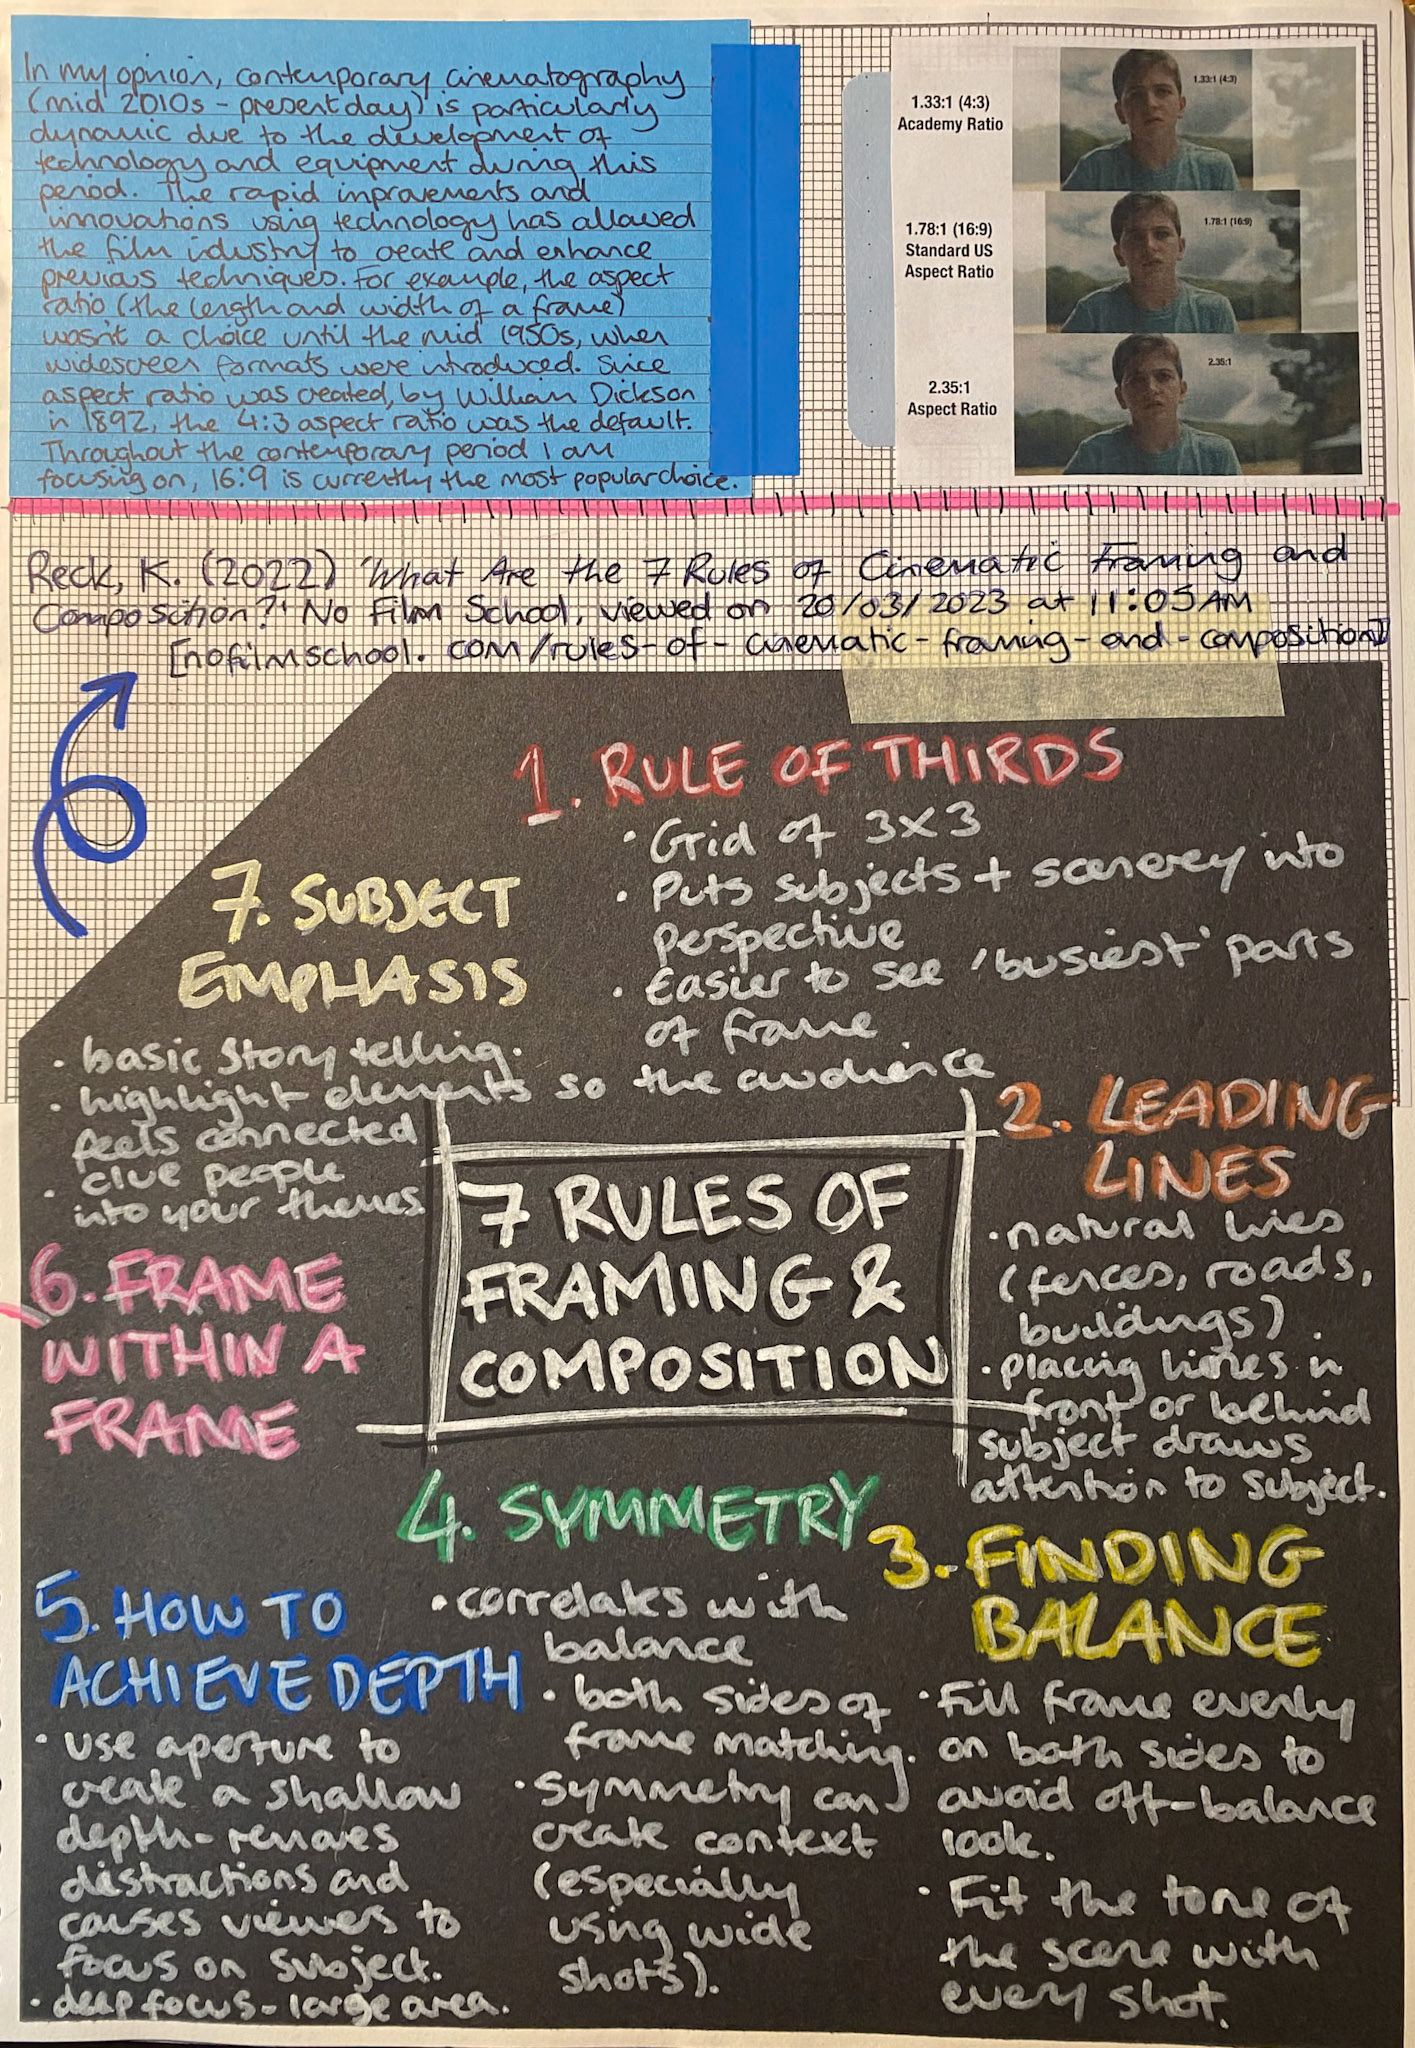 In my opinion, contemporary cinematography
(mid 2010s - present day) is particularly
dynamic due to the development of
technology and equipment during this
period. The rapid improvements and
innovations using technology has allowed
the film industry to create and enhance
previous techniques. For example, the aspect
ratio (the length and width of a frame)
wasn't a choice until the mid 1950s, when
widescreen formats were introduced. Since
aspect ratio was created, by William Dickson
in 1892, the 4:3 aspect ratio was the default.
Throughout the contemporary period I am
focusing on, 16:9 is currently the most popular choice.
1.33:1 (4:3)
Academy Ratio
1.33:1 (4:3)
1.78:1 (16:9)
Standard US
Aspect Ratio
1.78:1 (16:9)
2.35:1
Aspect Ratio
2.35:1
Reck, K. (2022) 'What Are the 7 Rules of Cinematic Framing and
Composition?' No Film School, viewed on 20/03/2023 at 11:05AM
[nofilmschool.com/rules-of-cinematic-framing-and-composition]
1. RULE OF THIRDS
• Grid of 3x3
• Puts subjects + scenerey into
perspective
• Easier to see 'busiest' parts
of frame
7. SUBJECT
EMPHASIS
• basic story telling.
• highlight elements so the audience
feels connected
• clue people
into your themes.
7 RULES OF
FRAMING &
COMPOSITION
2. LEADING
LINES
• natural lines
(fences, roads,
buildings).
• placing lines in
front or behind
subject draws
attention to subject.
6. FRAME
WITHIN A
FRAME
4. SYMMETRY
• correlates with
balance
• both sides of
frame matching.
• Symmetry can
create context
(especially
using wide
shots).
3. FINDING
BALANCE
• Fill frame evenly
on both sides to
avoid off-balance
look.
• Fit the tone of
the scene with
every shot.
5. HOW TO
ACHIEVE DEPTH
• use aperture to
create a shallow
depth - removes
distractions and
causes viewers to
focus on subject.
• deep focus - large area.